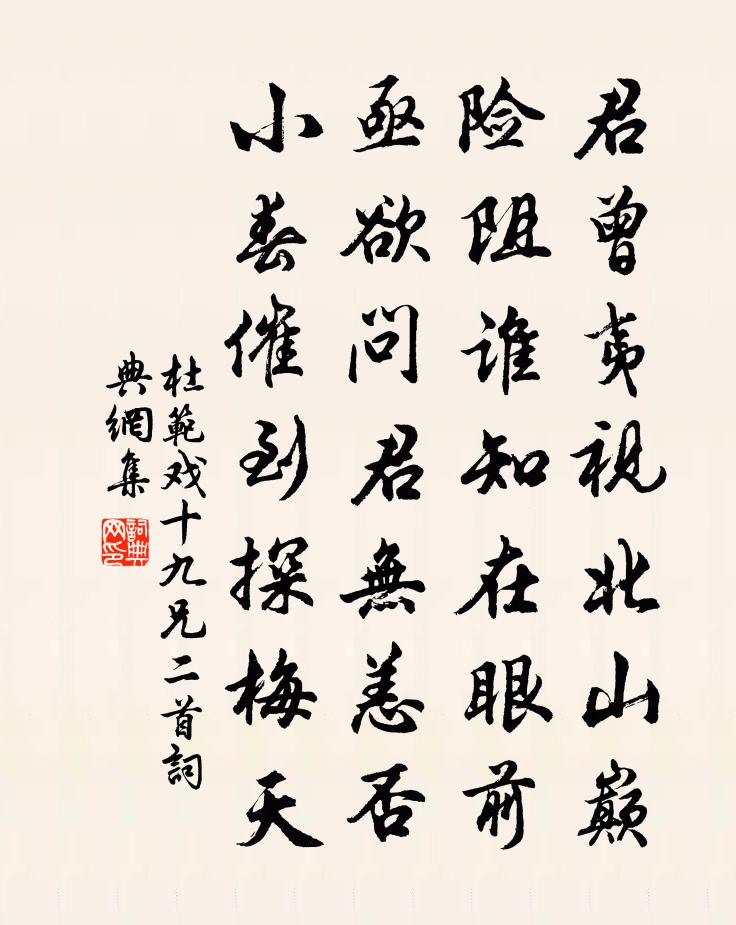 君曾夷視北山巔
险阻谁知在眼前
亟欲问君無恙否
小春催到探梅天
杜範戏十九兄二首詞
典網集
詞典网印